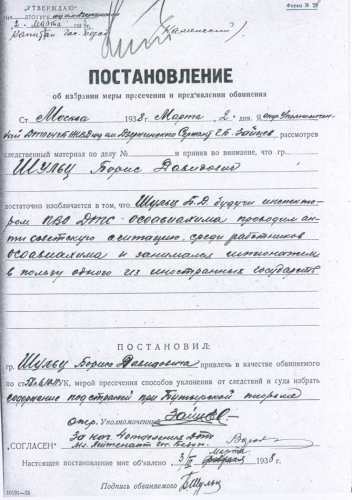 „УТВЕРЖДАЮ"
Форма № 23
2 марта
Капитан гос. Безоп. Каменский
ПОСТАНОВЛЕНИЕ
об избрании меры пресечения и предъявлении обвинения
Ст. Москва 1938 г. Марта 2 дня Я опер. Уполномочен-
ный Дзержинского Сержант Г.Б. Зайцев рассмотрев
следственный материал по делу № и приняв во внимание, что гр.
Шульц Борис Давидович
достаточно изобличается в том, что Шульц Б.Д. будучи инспекто-
ром ПВО ОСОАВИАХИМА проводил ан-
ти советскую агитацию, среди работников
ОСОАВИАХИМА и занимался шпионажем
в пользу одного из иностранных государств
ПОСТАНОВИЛ:
гр. Шульц Бориса Давидовича привлечь в качестве обвиняемого
по ст. УК, мерой пресечения способов уклонения от следствий и суда избрать
содержание под стражей при Бутырской тюрьме
Опер. Уполномоченный Зайцев
„СОГЛАСЕН" За нач. 4 отделения
мл. Лейтенант гос. Безоп.
Настоящее постановление мне об'явлено 3/III марта 1938 г.
Подпись обвиняемого Б Шульц
10191—23